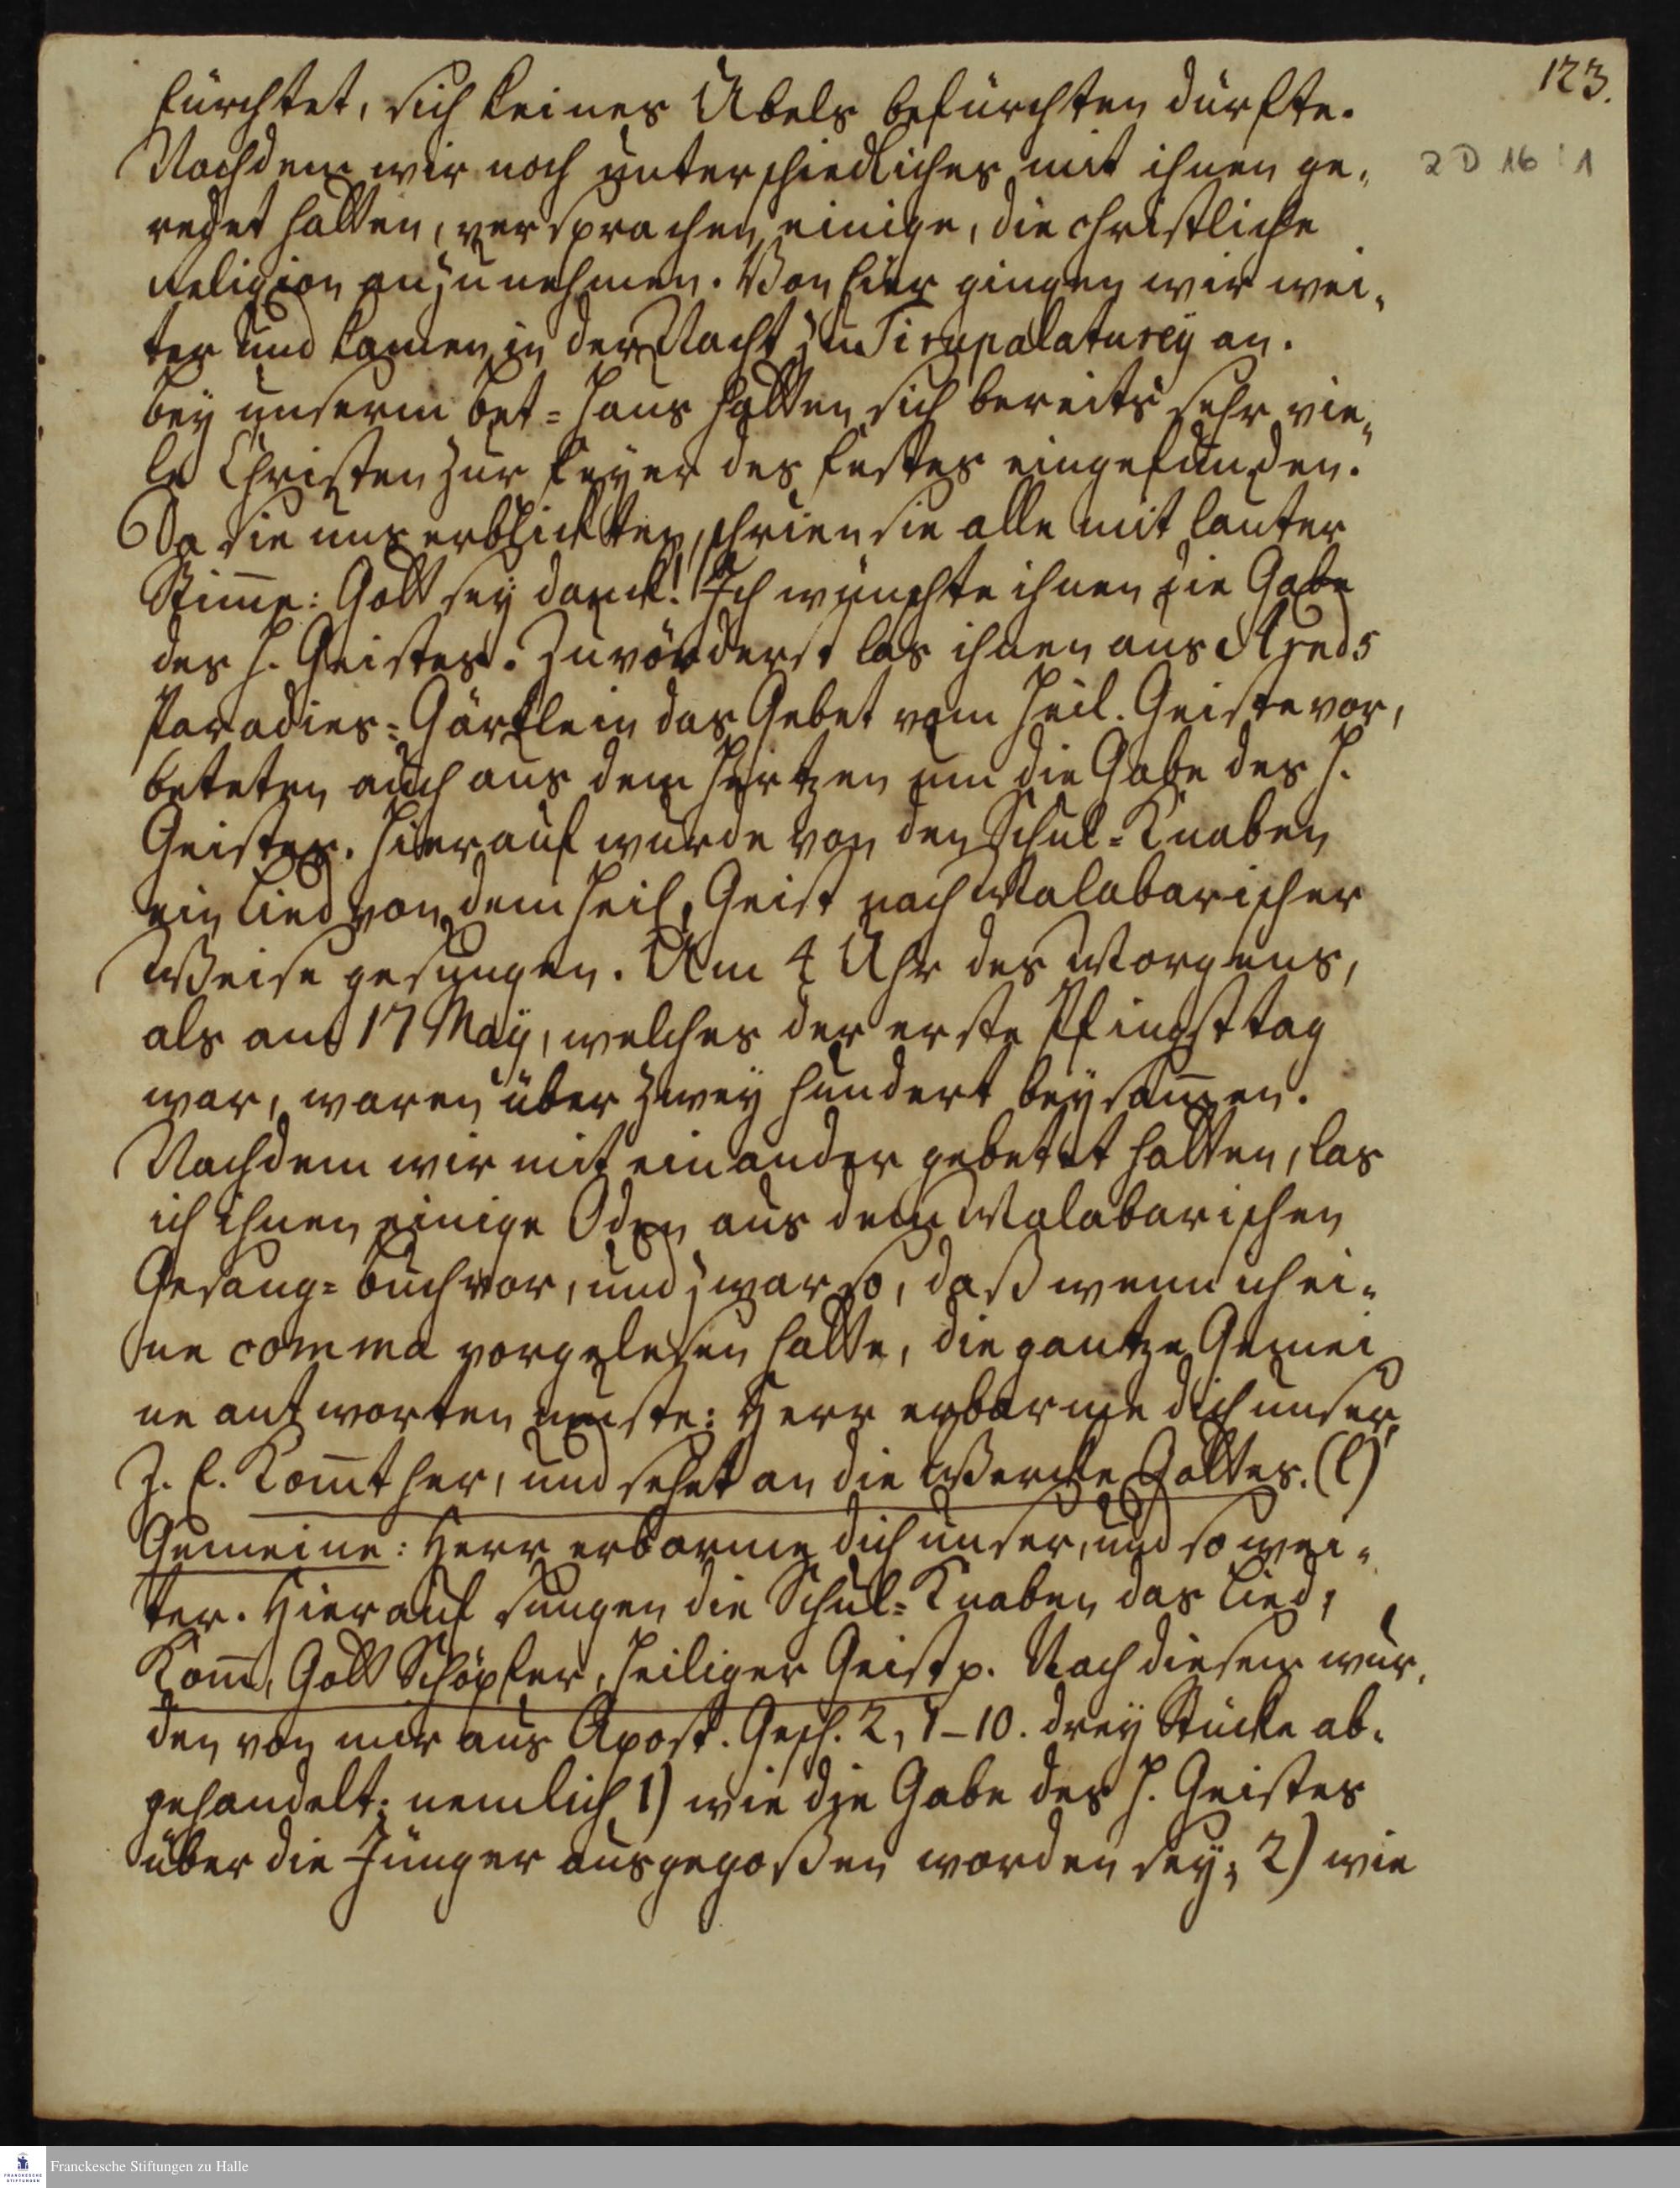 123.
fürchtet, sich keines Übels befürchten dürfte.
2 D 16 : 1
Nachdem wir noch unterschiedliches mit ihnen ge-
redet hatten, versprachen einige, die christliche
Religion anzunehmen. Von hier gingen wir wei-
ter und kamen in der Nacht zu Tirupalaturey an.
Bey unserm Bet-Haus hatten sich bereits sehr vie-
le Christen zur Feyer des Festes eingefunden.
Da sie uns erblickten, schrien sie alle mit lauter
Stim̄e: Gott sey danck! Ich wünschte ihnen die Gabe
des H. Geistes. Zuvörderst las ihnen aus Arends
Paradies-Gärtlein das Gebet vom Heil. Geiste vor,
beteten auch aus dem Hertzen um die Gabe des H.
Geistes. Hierauf wurde von den Schul-Knaben
ein Lied von dem Heil. Geist nach Malabarischer
Weise gesungen. Um 4 Uhr des Morgens,
als am 17 May, welches der erste Pfingsttag
war, waren über zwey hundert beysam̄en.
Nachdem wir mit einander gebetet hatten, las
ich ihnen einige Oden aus dem Malabarischen
Gesang-Buch vor, und zwar so, daß wenn ich ei-
ne comma vorgelesen hatte, die gantze Gemei
ne antworten muste: Herr erbarme dich unser,
Z. E. Kom̄t her, und sehet an die Wercke Gottes. (l)
Gemeine: Herr erbarme dich unser, und so wei-
ter. Hierauf sungen die Schul-Knaben das Lied,
Kom̄, Gott Schöpfer, Heiliger Geist p. Nach diesem wur-
den von mir aus Apost. Gesch. 2, 1-10. drey Stücke ab-
gehandelt; nemlich 1) wie die Gabe des H. Geistes
über die Jünger ausgegoßen worden sey; 2) wie
Franckesche Stiftungen zu Halle